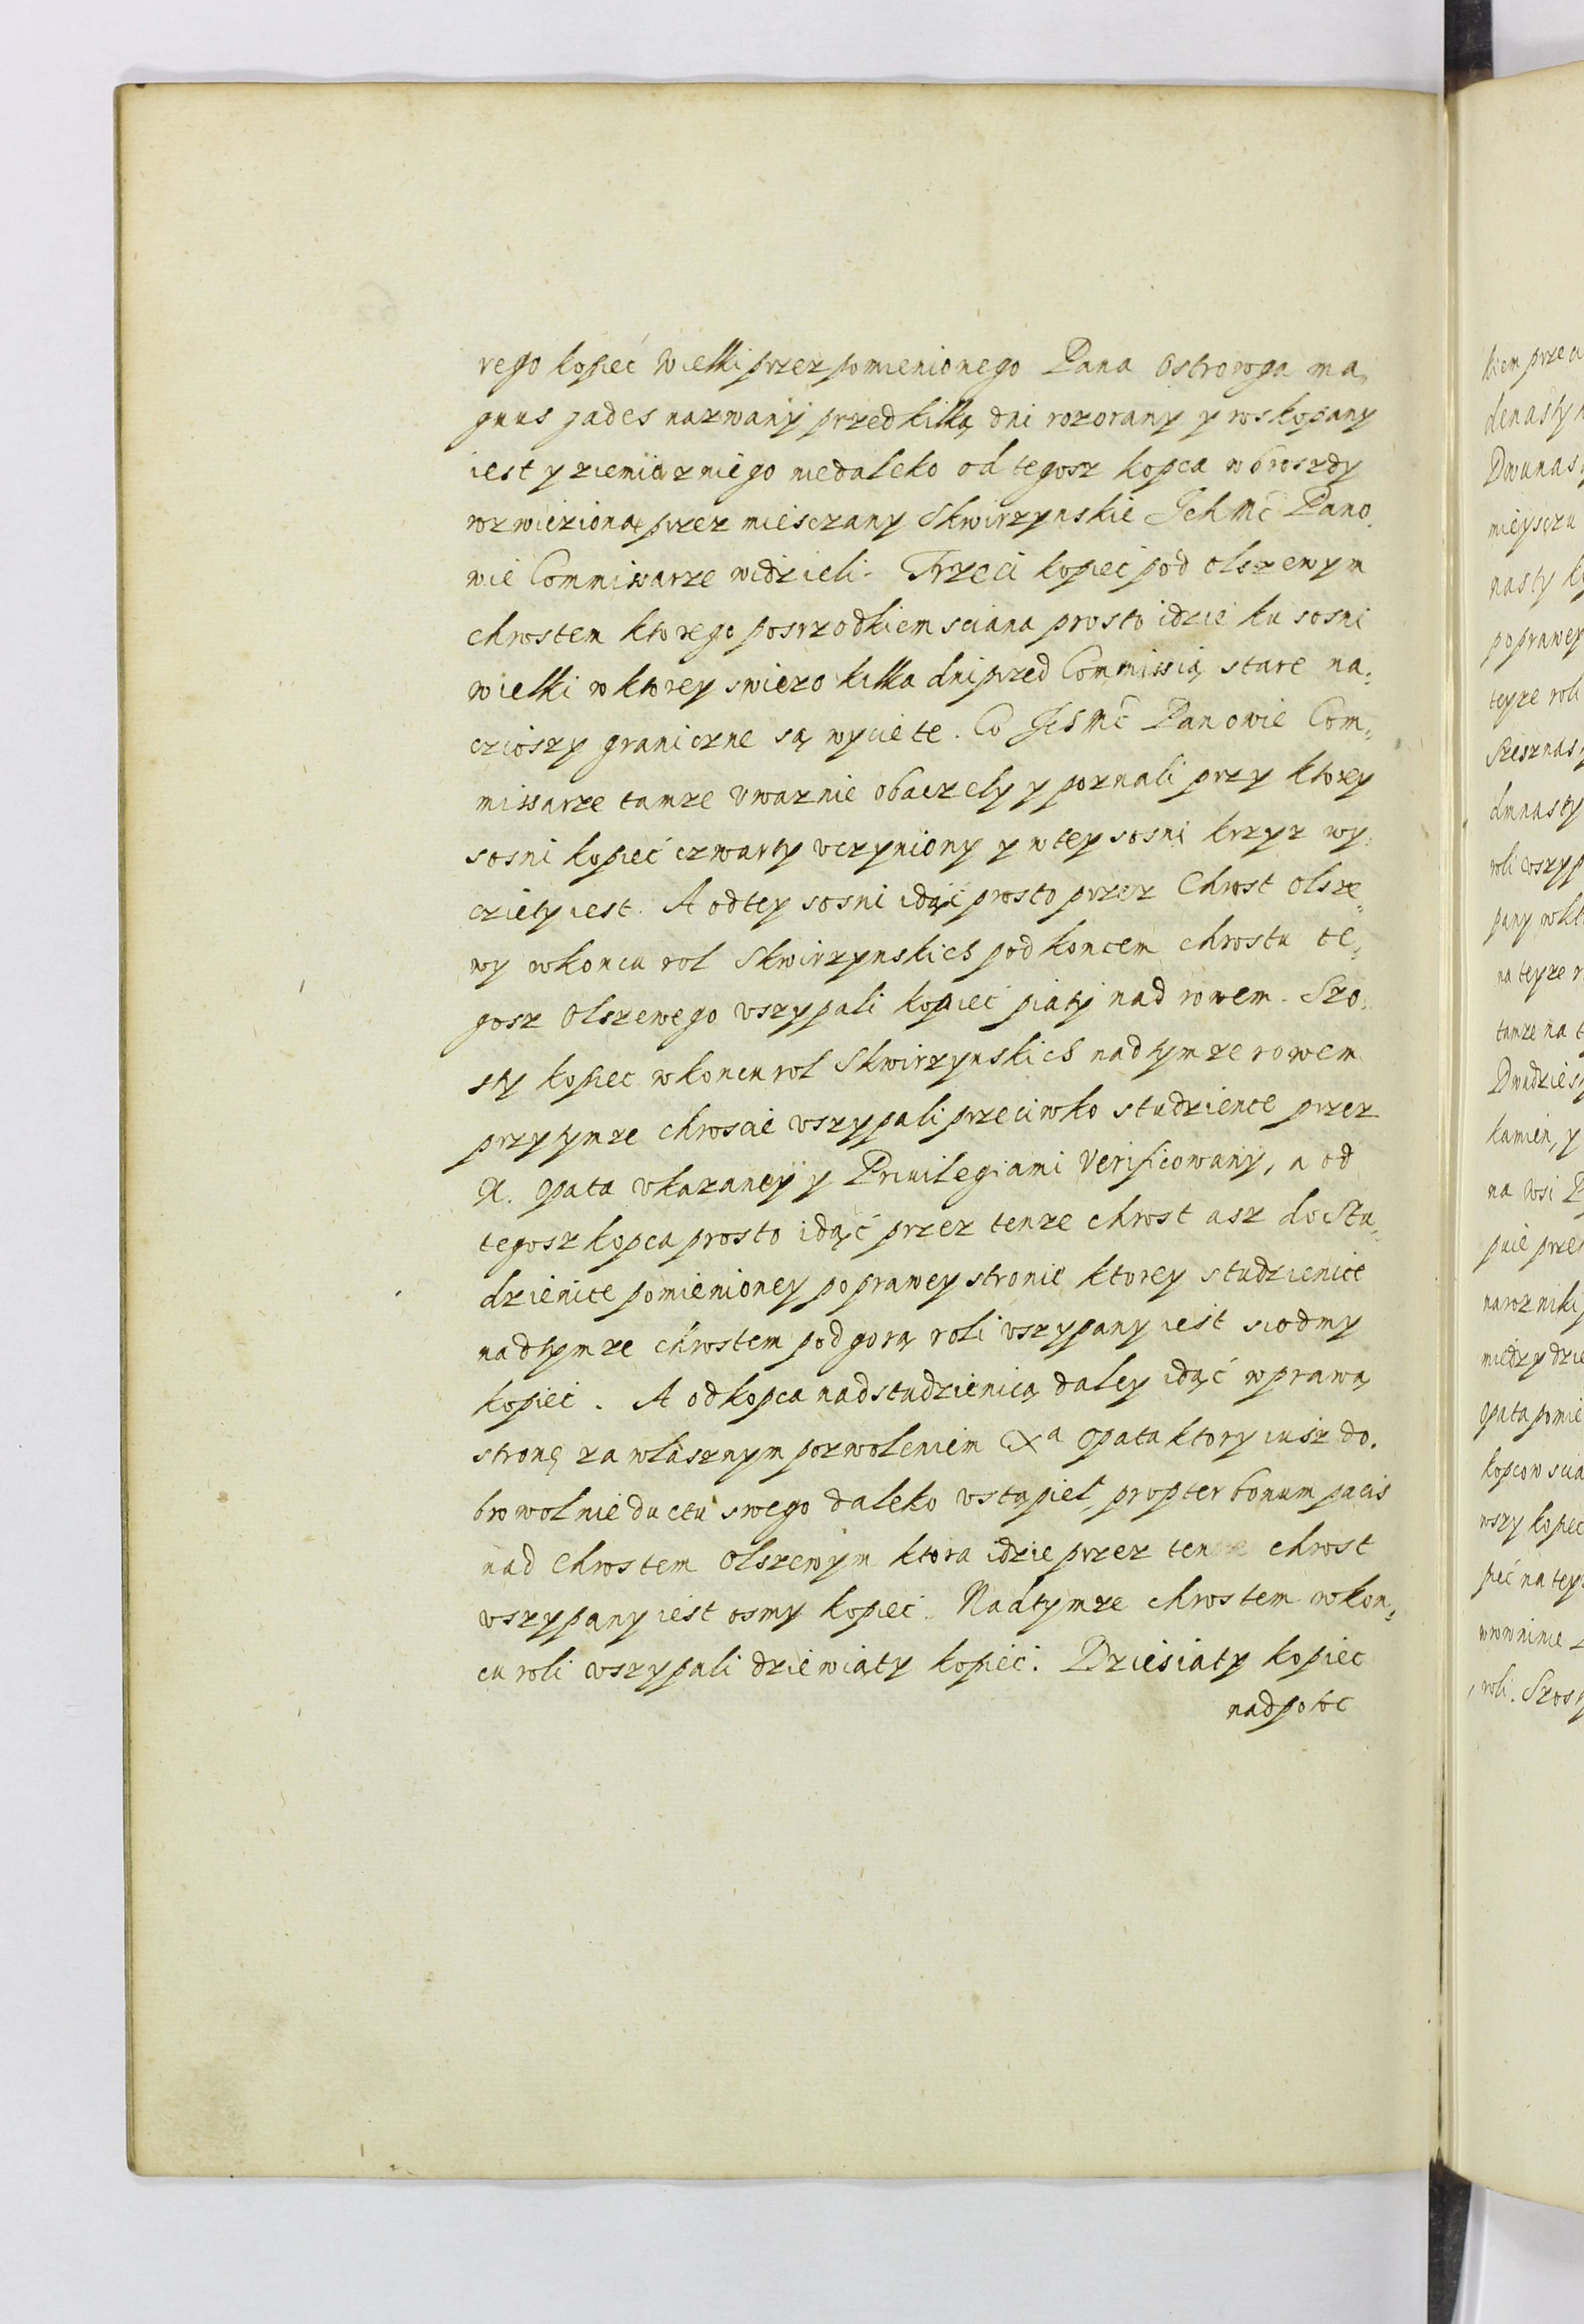 rego kopieć wielki przez pomienionego Pana Ostroroga ma,
gnus gades nazwany przed kilką dni rozorany y roskopany
iest y ziemia z niego niedaleko od tegosz kopca w brozdy
rozwieziona przez miesczany Skwirzynskie Ich Mć Pano,
wie Commissarze widzieli. Trzeci kopiec pod olszewym
chrostem ktorego posrzodkiem sciana prosto idzie ku sosni
wielki w ktorey swiezo kilka dni przed Commissią stare na,
czioszy graniczne są wyciete. Co Ich Mć Panowie Com,
missarze tamze vwaznie obaczely y poznali przy ktorey
sosni kopieć czwarty vczyniony y w tey sosni krzyz wy,
cziety iest. A od tey sosni idąć prosto przez Chrost olsze,
wy w koncu rol Skwirzynskich pod koncem chrostu te,
gosz olszewego vszypali kopieć piaty nad rowem. Szo,
sty kopiec w koncu rol Skwirzynskich nad tymze rowem
przy tymze chroscie vszypali przeciwko studzience przez
X. Opata vkazaney y Priuilegiami Verificowany, a od
tegosz kopca prosto idąć przez tenze chrost asz do Stu,
dzienice pomienioney po prawey stronie ktorey studzienice
nad tymze chrostem pod gorą roli vszypany iest siodmy
kopiec. A od kopca nad studzienicą daley idąć w prawą
stronę za własznym pozwoleniem Xa Opata ktory iusz do,
browolnie ductu swego daleko vstąpiel propter bonum pacis
nad Chrostem Olszewym ktora idzie przez tenze chrost
vszypany iest osmy kopieć. Nad tymze chrostem w kon,
cu roli vszypali dziewiąty kopieć. Dziesiaty kopiec
nad połoc

kiem przeci
denasty
Dwunas
mieysczu
nasty k
po prawey
teyze roli
Szesznas
dmnasty
roli vszyp
pany w kt
na teyze r
tamze na t
Dwudzies
kamien, y
na Wsi P
puie prze
narozniki
miedzy dzie
Opata pomie
kopcow scia
wszy kopiec
pieć na tey
wrownine
roli. Szos